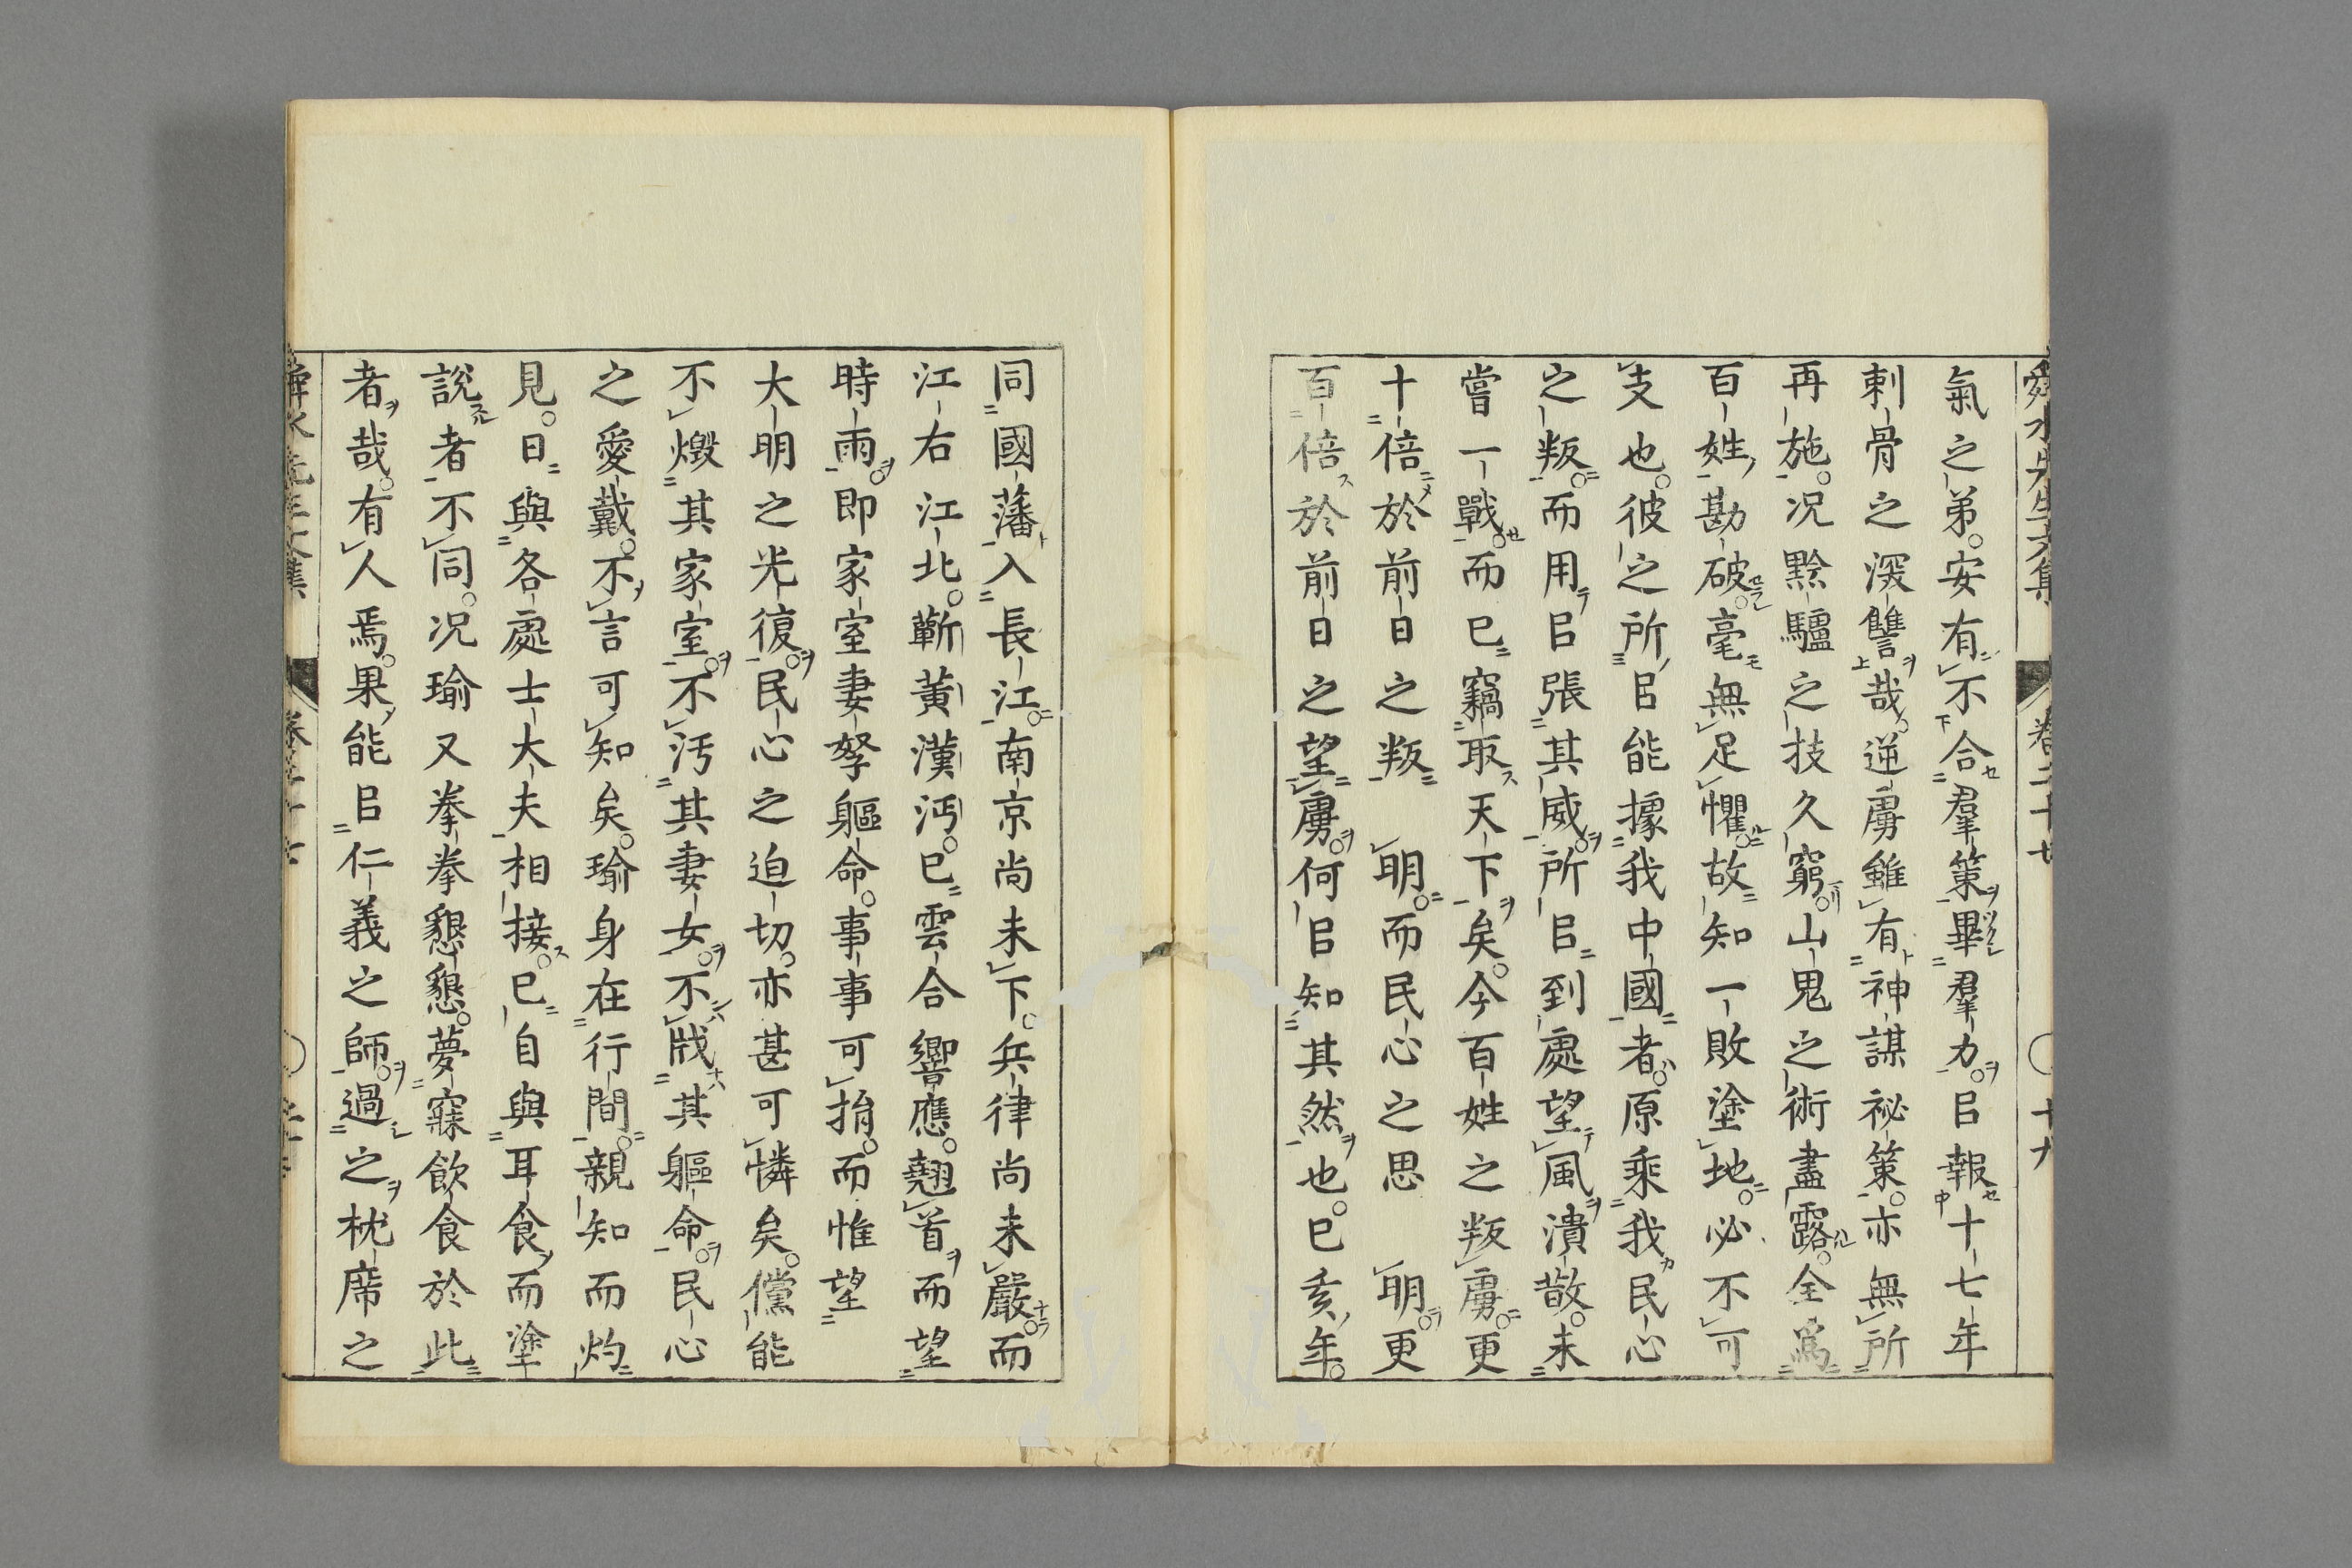 舜水先生文集 卷二十七 十九
氣之弟。安有不合羣策畢羣力。㠯報十七年
刺骨之深讐哉。逆虜雖有神謀祕策。亦無所
再施。况黔驢之技久窮。山鬼之術盡露。全爲
百姓勘破。毫無足懼。故知一敗塗地。必不可
支也。彼之所㠯能據我中國者。原乘我民心
之叛。而用㠯張其威。所㠯到處望風潰散。未
嘗一戰。而已竊取天下矣。今百姓之叛虜。更
十倍於前日之叛　明。而民心之思　明。更
百倍於前日之望虜。何㠯知其然也。已亥年。
同國藩入長江。南京尚未下。兵律尚未嚴。而
江右江北。蘄黃漢沔。已雲合響應。翹首而望
時雨。即家室妻孥軀命。事事可捐。而惟望
大明之光復。民心之迫切。亦甚可憐矣。儻能
不燬其家室。不汚其妻女。不戕其軀命。民心
之愛戴。不言可知矣。瑜身在行間。親知而灼
見。日與各處士大夫相接。已自與耳食而塗
說者不同。况瑜又拳拳懇懇。夢寐飲食於此
者哉。有人焉。果能㠯仁義之師。過之枕席之